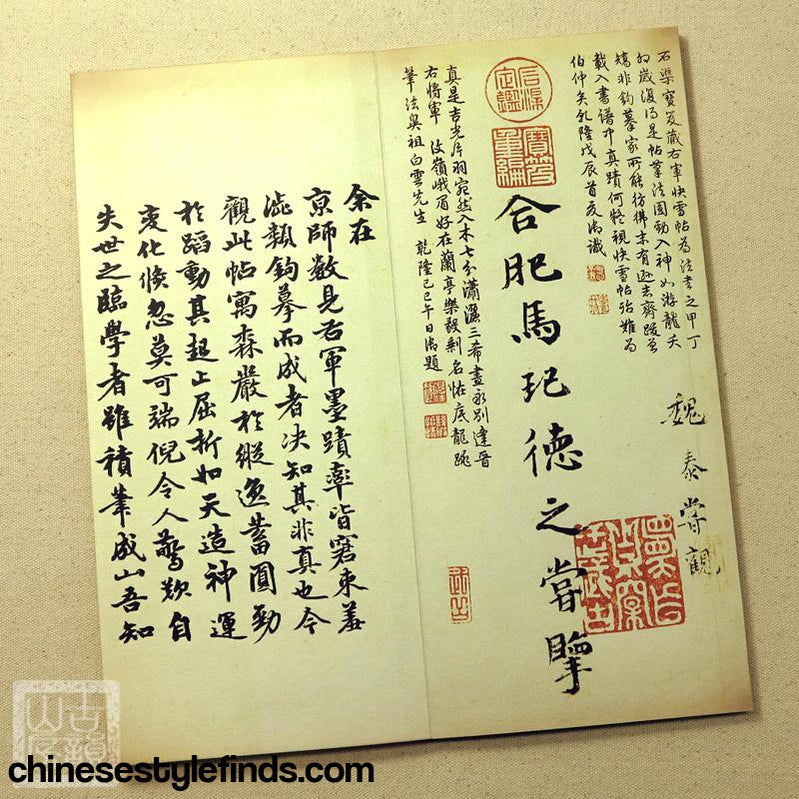 石渠寶笈藏右軍快雪帖為法書之甲丁
卯歲復得是帖筆法圓勁入神如游龍天
矯非鉤摹家所能彷彿末有遜志齊跋曾
載入書譜中真蹟何疑視快雪帖殆難為
伯仲矣乾隆戊辰首夏御識
魏泰嘗觀
石渠定鑑
寶笈重編
合肥馬玘德之嘗
真是吉光片羽宛然入木七分瀟灑三希盡永別逢晉
右將軍 汶嶺峨眉好在蘭亭樂毅剩名帖底龍跳
筆法奧祖白雲先生 乾隆己巳午日御題
余在
京師數見右軍墨蹟率皆窘束羞
澁類鉤摹而成者决知其非真也今
觀此帖寓森嚴於縱逸蓄圓勁
於蹈動其起止屈折如天造神運
變化倏忽莫可端倪令人驚歎自
失世之臨學者雖積筆成山吾知
古韻山房
chinesestylefinds.com